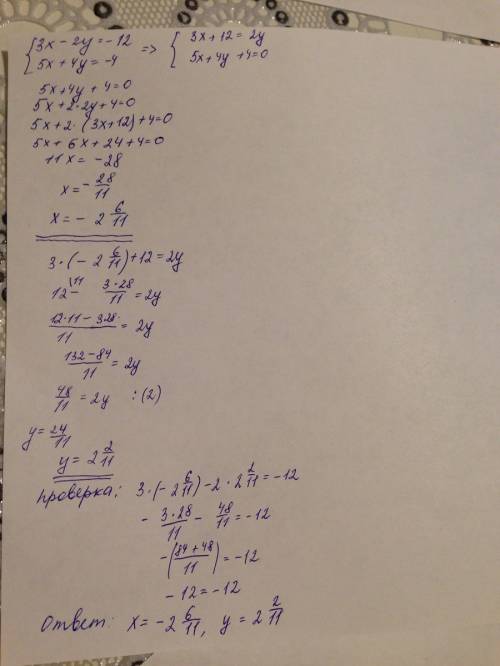 {3x - 2y = -12 => {3x + 12 = 2y
{5x + 4y = -4 {5x + 4y + 4 = 0
5x + 4y + 4 = 0
5x + 2·2y + 4 = 0
5x + 2·(3x + 12) + 4 = 0
5x + 6x + 24 + 4 = 0
11x = -28
x = - 28/11
x = - 2 6/11
3·(- 2 6/11) + 12 = 2y
12\11 - 3·28/11 = 2y
12·11 - 3·28/11 = 2y
132 - 84/11 = 2y
48/11 = 2y :(2)
y = 24/11
y = 2 2/11
Проверка: 3·(- 2 6/11) - 2·2 2/11 = -12
- 3·28/11 - 48/11 = -12
-(84 + 48/11) = -12
- 12 = -12
Ответ: x = -2 6/11, y = 2 2/11